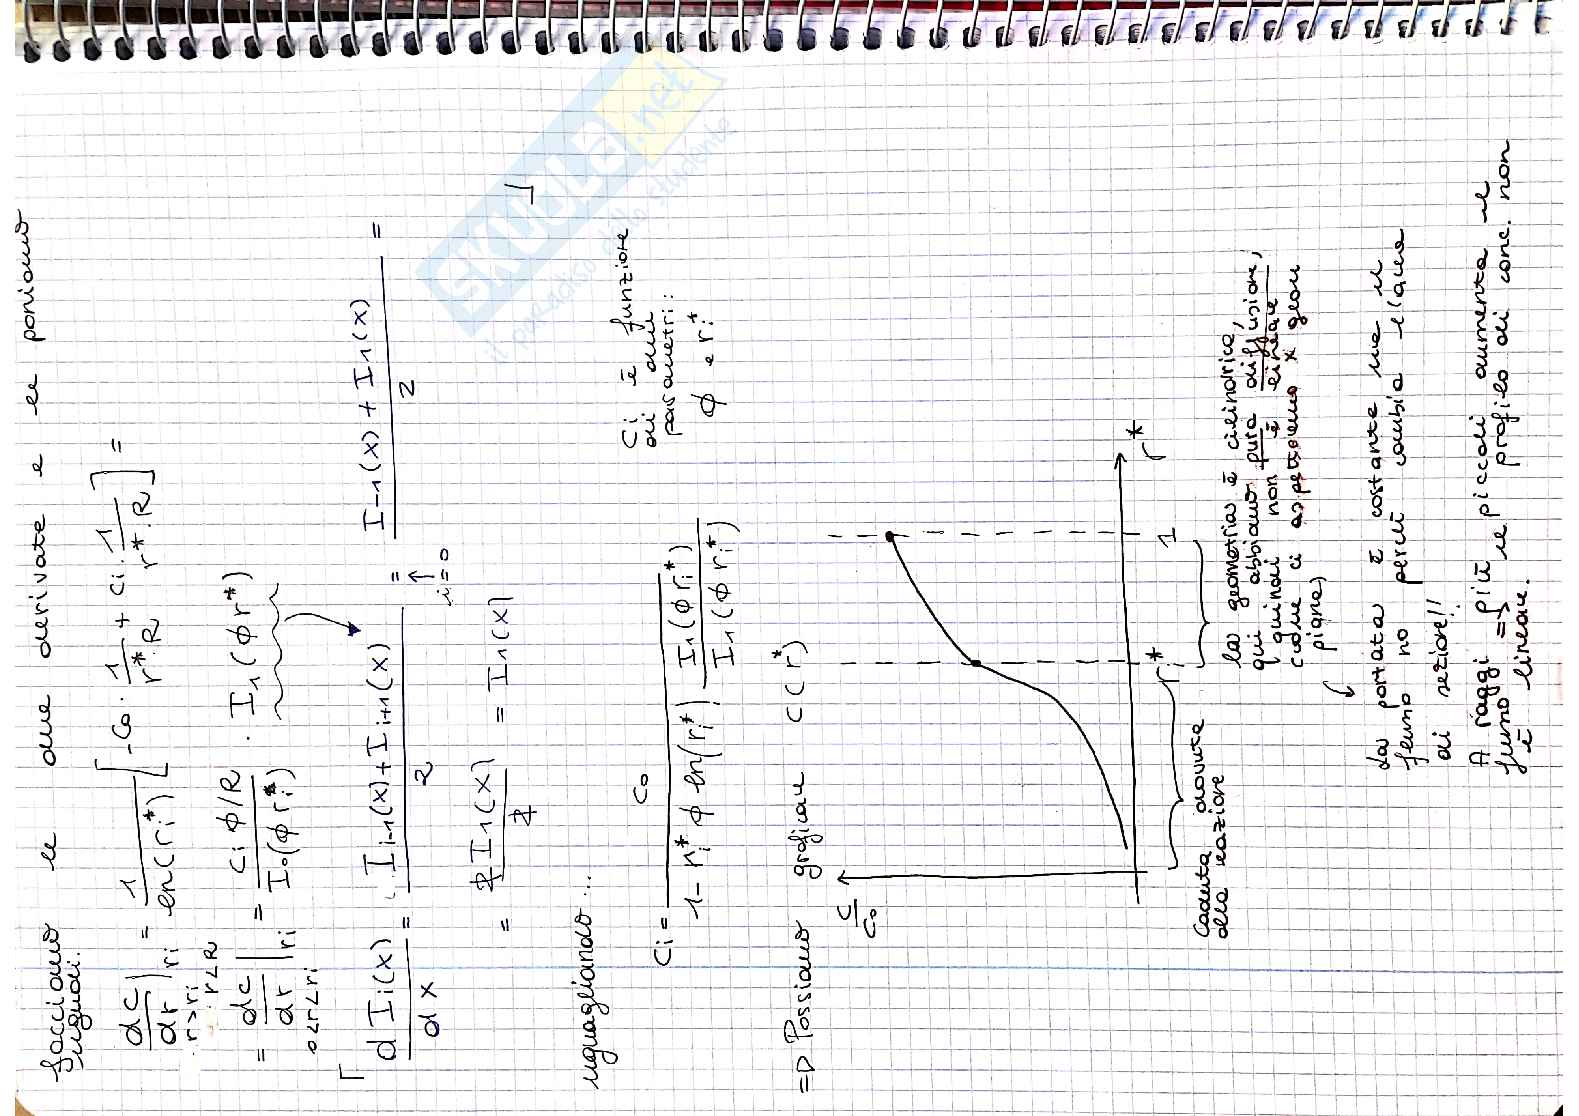 facciamo le due derivate e le poniamo
uguali.
dc/dr |ri = 1/ln(ri*) [-C0 · 1/(r*·R) + Ci · 1/(r*·R)] =
r>ri
r<R
= dc/dr |ri = Ci ϕ/R / I0(ϕ ri*) · I1(ϕ r*)
0<r<ri
d Ii(x)/dx = (Ii-1(x) + Ii+1(x))/2 = (I-1(x) + I1(x))/2 =
i=0
= 2 I1(x)/2 = I1(x)
uguagliando...
Ci = C0 / (1 - ri* ϕ ln(ri*) · I1(ϕ ri*)/I1(ϕ ri*))
Ci è funzione
di due
parametri:
ϕ e ri*
=D Possiamo graficare C(r*)
C/C0
ri*
1
r*
Caduta dovuta
alla reazione
la geometria è cilindrica,
qui abbiamo pura diffusione,
quindi non è lineare
(come ci aspettiamo x geom
piana)
La portata è costante ma il
flusso no perché cambia l'area
di sezione!!
A raggi più piccoli aumenta il
flusso => il profilo di conc. non
è lineare.
SKUOLA.net
il paradiso dello studente